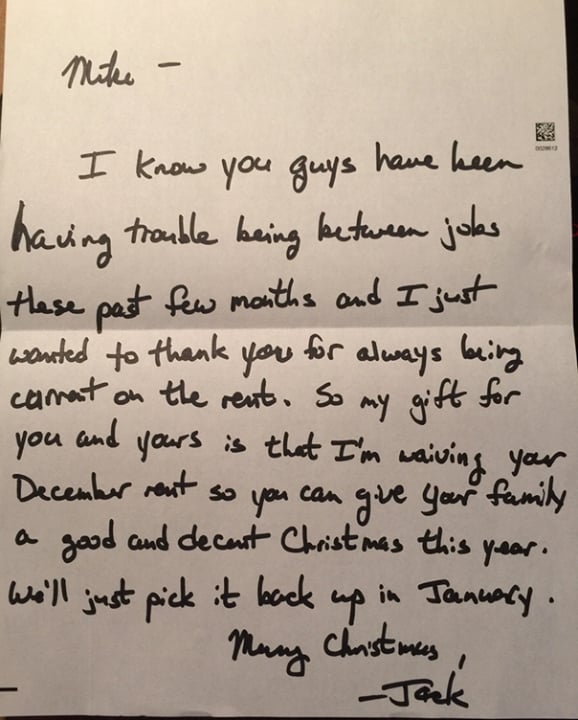 Mike -
0028612
I know you guys have been
having trouble being between jobs
these past few months and I just
wanted to thank you for always being
current on the rent. So my gift for
you and yours is that I'm waiving your
December rent so you can give your family
a good and decent Christmas this year.
We'll just pick it back up in January.
Merry Christmas,
-Jack